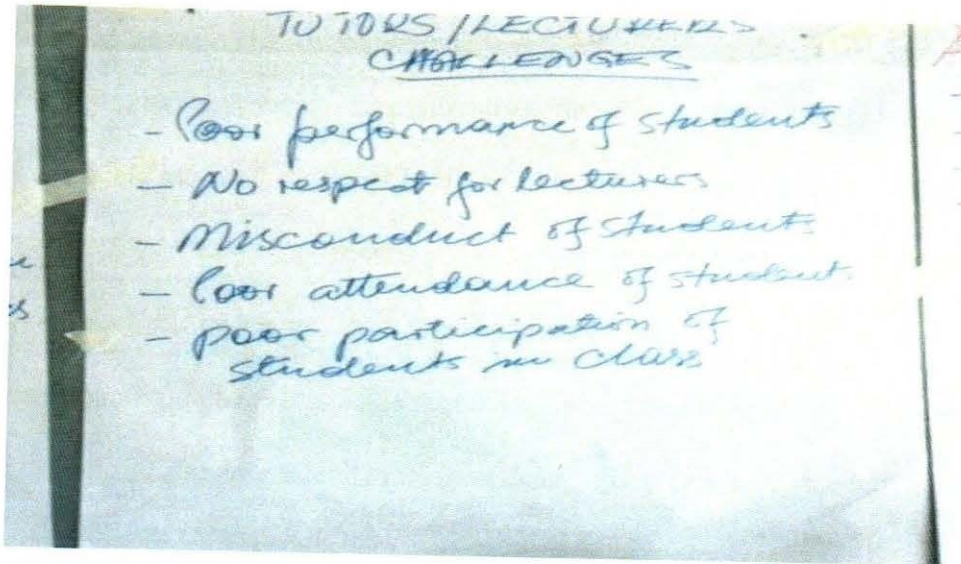 TUTORS / LECTURERS
CHALLENGES
- Poor performance of students
- No respect for lecturers
- Misconduct of students
- Poor attendance of student
- poor participation of
students in class